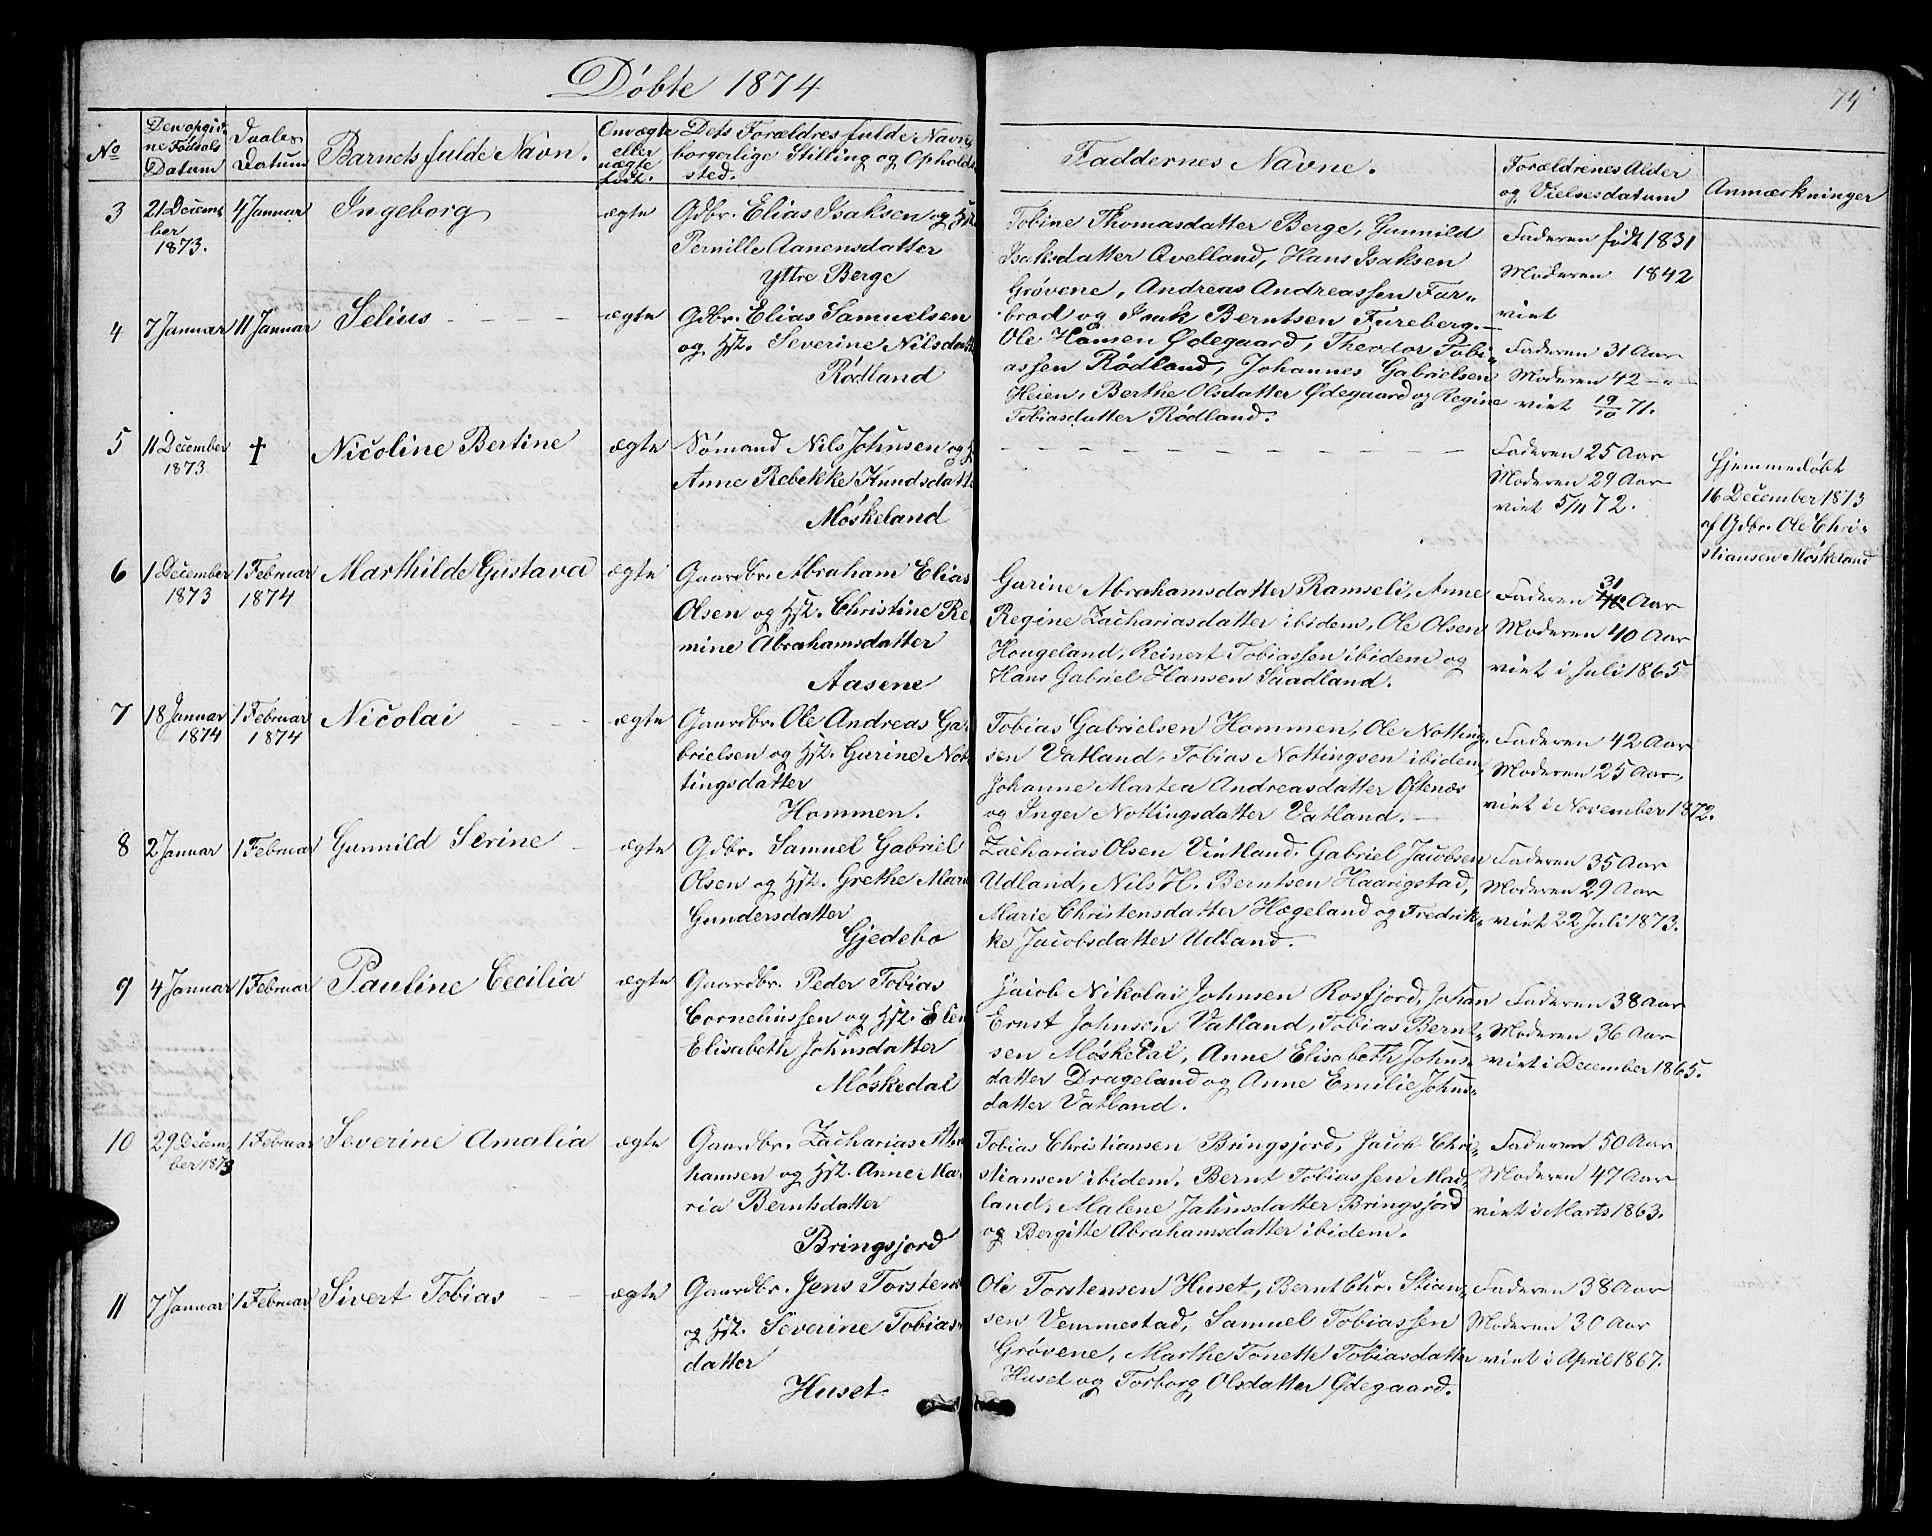 Døbte 1874
74
No
Den opgivne Fødsels Datum
Daabs Datum
Barnets fulde Navn.
Om ægte eller uægte født.
Dets Forældres fulde Navn, borgerlige Stilling og Opholdssted.
Faddernes Navne.
Forældrenes Alder og Vielsesdatum
Anmærkninger
3
21 Decem-
ber
1873.
4 Januar
Ingeborg
ægte
Gdbr. Elias Isaksen og Hst.
Pernille Aanensdatter
Yttre Berge
Tobine Thomasdatter Berge, Gunnild
Isaksdatter Avelland, Hans Isaksen
Grøvene, Andreas Andreassen Far-
brod og Isak Berntsen Fureberg.
Faderen født 1831
Moderen 1842
viet
4
7 Januar
11 Januar
Selius
ægte
Gdbr. Elias Samuelsen
og Hst. Severine Nilsdatt
Rødland
Ole Hansen Ødegaard, Theodor Tobi-
assen Rødland, Johannes Gabrielsen
Heien, Berthe Olsdatter Ødegaard og Regine
Tobiasdatter Rødland.
Faderen 31 Aar
Moderen 42 — " —
viet 19/10 71.
5
11 December
1873
†
Nicoline Bertine
ægte
Sømand Nils Johnsen og H
Anne Rebekke Knudsdatt
Møskeland
Faderen 25 Aar
Moderen 29 Aar
viet 5/11 72.
Hjemmedøbt
16 December 1873
af Gdbr. Ole Chri-
stiansen Møskeland
6
1 December
1873
1 Februar
1874
Marthilde Gustava
ægte
Gaardbr. Abraham Elias
Olsen og Hst. Christine Re-
mine Abrahamsdatter
Aasene
Gurine Abrahamsdatter Ramsli, Anne
Regine Zachariasdatter ibidem, Ole Olsen
Hougeland, Reinert Tobiassen ibidem og
Hans Gabriel Hansen Saadland.
Faderen 31 Aar
Moderen 40 Aar
viet i Juli 1865
7
18 Januar
1874
1 Februar
1874
Nicolai
ægte
Gaardbr. Ole Andreas Ga-
brielsen og Hst. Gurine Not-
tingsdatter
Hommen.
Tobias Gabrielsen Hommen, Ole Notting-
sen Vatland, Tobias Nottingsen ibidem,
Johanne Martea Andreasdatter Oftenæs
og Inger Nottingsdatter Vatland.
Faderen 42 Aar
Moderen 25 Aar,
viet i November 1872.
8
2 Januar
1 Februar
Gunnild Serine
ægte
Gdbr. Samuel Gabriel
Olsen og Hst. Grethe Marie
Gundersdatter
Gjedebo
Zacharias Olsen Vintland, Gabriel Jacobsen
Udland, Nils H. Berntsen Haarigstad,
Marie Christensdatter Hægeland og Fredrik-
ke Jacobsdatter Udland.
Faderen 35 Aar
Moderen 29 Aar
viet 22 Juli 1873.
9
4 Januar
1 Februar
Pauline Cecilia
ægte
Gaardbr. Peder Tobias
Corneliussen og Hst. Elen
Elisabeth Johnsdatter
Møskedal
Jacob Nikolai Johnsen Rosfjord, Johan
Ernst Johnsen Vatland, Tobias Bernt-
sen Møskedal, Anne Elisabeth Johns-
datter Drageland og Anne Emilie Johns-
datter Vatland.
Faderen 38 Aar
Moderen 36 Aar
viet i December 1865.
10
29 Decem-
ber 1873
1 Februar
Severine Amalia
ægte
Gaardbr. Zacharias Abra
hamsen og Hst. Anne Ma-
ria Berntsdatter
Bringsjord
Tobias Christiansen Bringsjord, Jacob Chri-
stiansen ibidem, Bernt Tobiassen Mad-
land, Malene Jahnsdatter Bringsjord
og Bergitte Abrahamsdatter ibidem.
Faderen 50 Aar
Moderen 47 Aar
viet i Marts 1863.
11
7 Januar
1 Februar
Sivert Tobias
ægte
Gaardbr. Jens Torstens
og Hst. Severine Tobias-
datter
Huset
Ole Torstensen Huset, Bernt Chr. Stian-
sen Vemmestad, Samuel Tobiassen
Grøvene, Marthe Tonette Tobiasdatter
Huset og Torborg Olsdatter Ødegaard.
Faderen 38 Aar
Moderen 30 Aar
viet i April 1867.